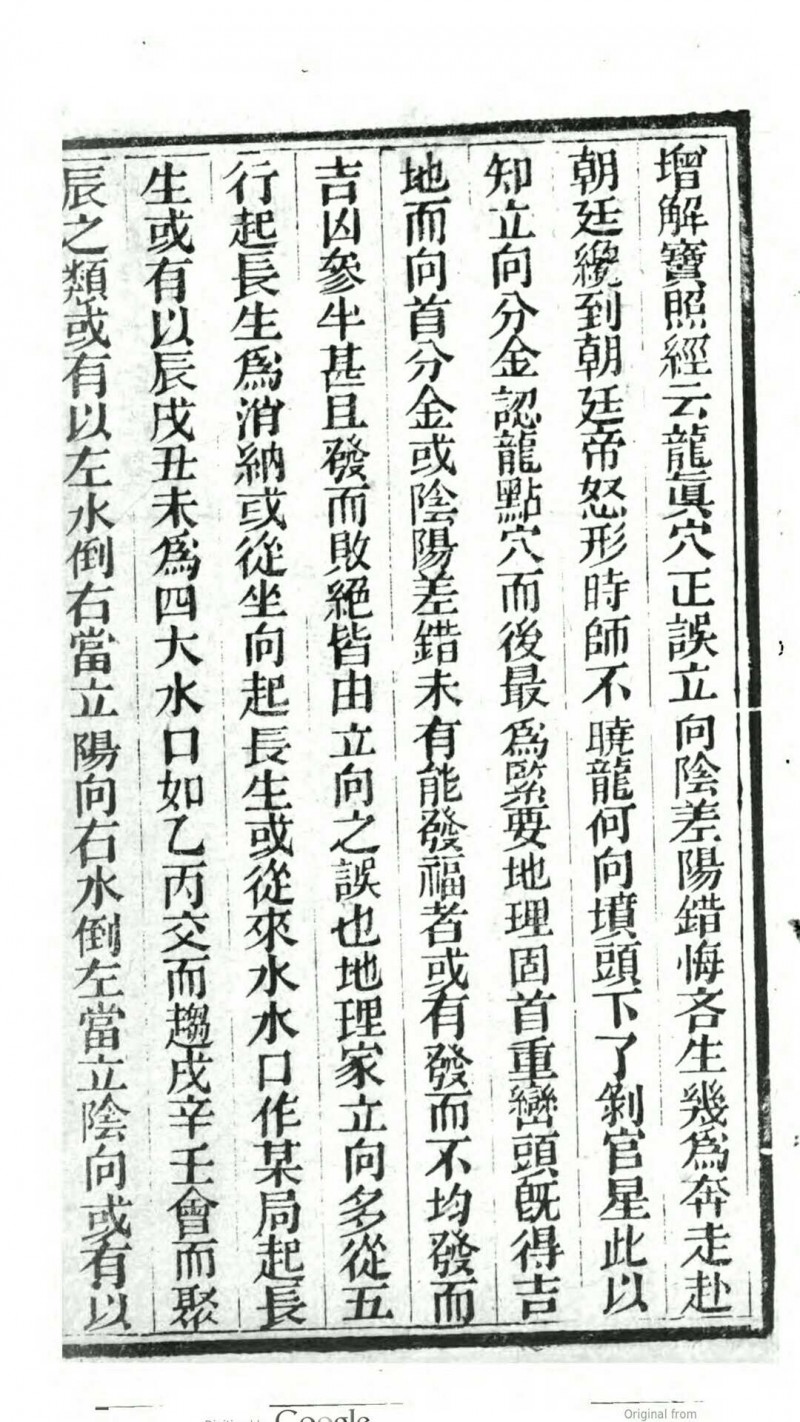 增解寶照經云龍眞穴正誤立向陰差陽錯悔吝生幾爲奔走赴
朝廷纔到朝廷帝怒形時師不曉龍何向墳頭下了剝官星此以
知立向分金認龍點穴而後最爲緊要地理固首重巒頭旣得吉
地而向首分金或陰陽差錯未有能發福者或有發而不均發而
吉凶參半甚且發而敗絕皆由立向之誤也地理家立向多從五
行起長生爲消納或從坐向起長生或從來水水口作某局起長
生或有以辰戌丑未爲四大水口如乙丙交而趨戌辛壬會而聚
辰之類或有以左水倒右當立陽向右水倒左當立陰向或有以
Google
Original from